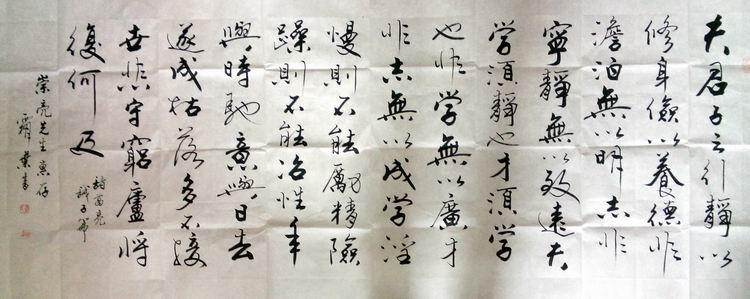 夫君子之行靜以
修身儉以養德非
澹泊無以明志非
寧靜無以致遠夫
学須靜也才須学
也非学無以廣才
非志無以成学淫
慢則不能勵精險
躁則不能冶性年
與時馳意與日去
遂成枯落多不接
世悲守窮廬將
復何及
諸葛亮
誡子書
崇亮先生惠存